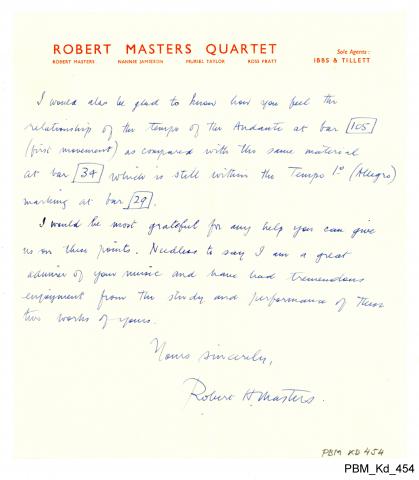 ROBERT MASTERS QUARTET
ROBERT MASTERS NANNIE JAMIESON MURIEL TAYLOR ROSS PRATT
Sole Agents:
IBBS & TILLETT
I would also be glad to know how you feel the
relationship of the tempo of the Andante at bar 105
(first movement) as compared with the same material
at bar 34 which is still within the Tempo 1º (Allegro)
marking at bar 29.
I would be most grateful for any help you can give
us on these points. Needless to say I am a great
admirer of your music and have had tremendous
enjoyment from the study and performance of these
two works of yours.
Yours sincerely,
Robert H. Masters.
PBM KD 454
PBM_Kd_454